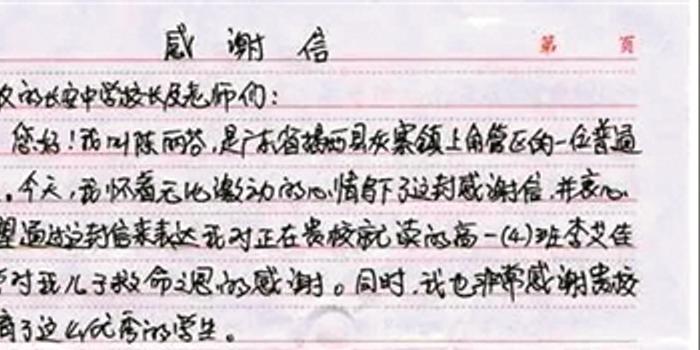 感谢信
第 页
的长安中学校长及老师们：
您好！我叫陈丽容，是广东省揭西县灰寨镇上角管区的一位普通
。今天，我怀着无比激动的心情写下了这封感谢信，并衷心
望通过这封信来表达我对正在贵校就读的高一(4)班李艾佳
对我儿子救命之恩的感谢。同时，我也非常感谢贵校
了这么优秀的学生。